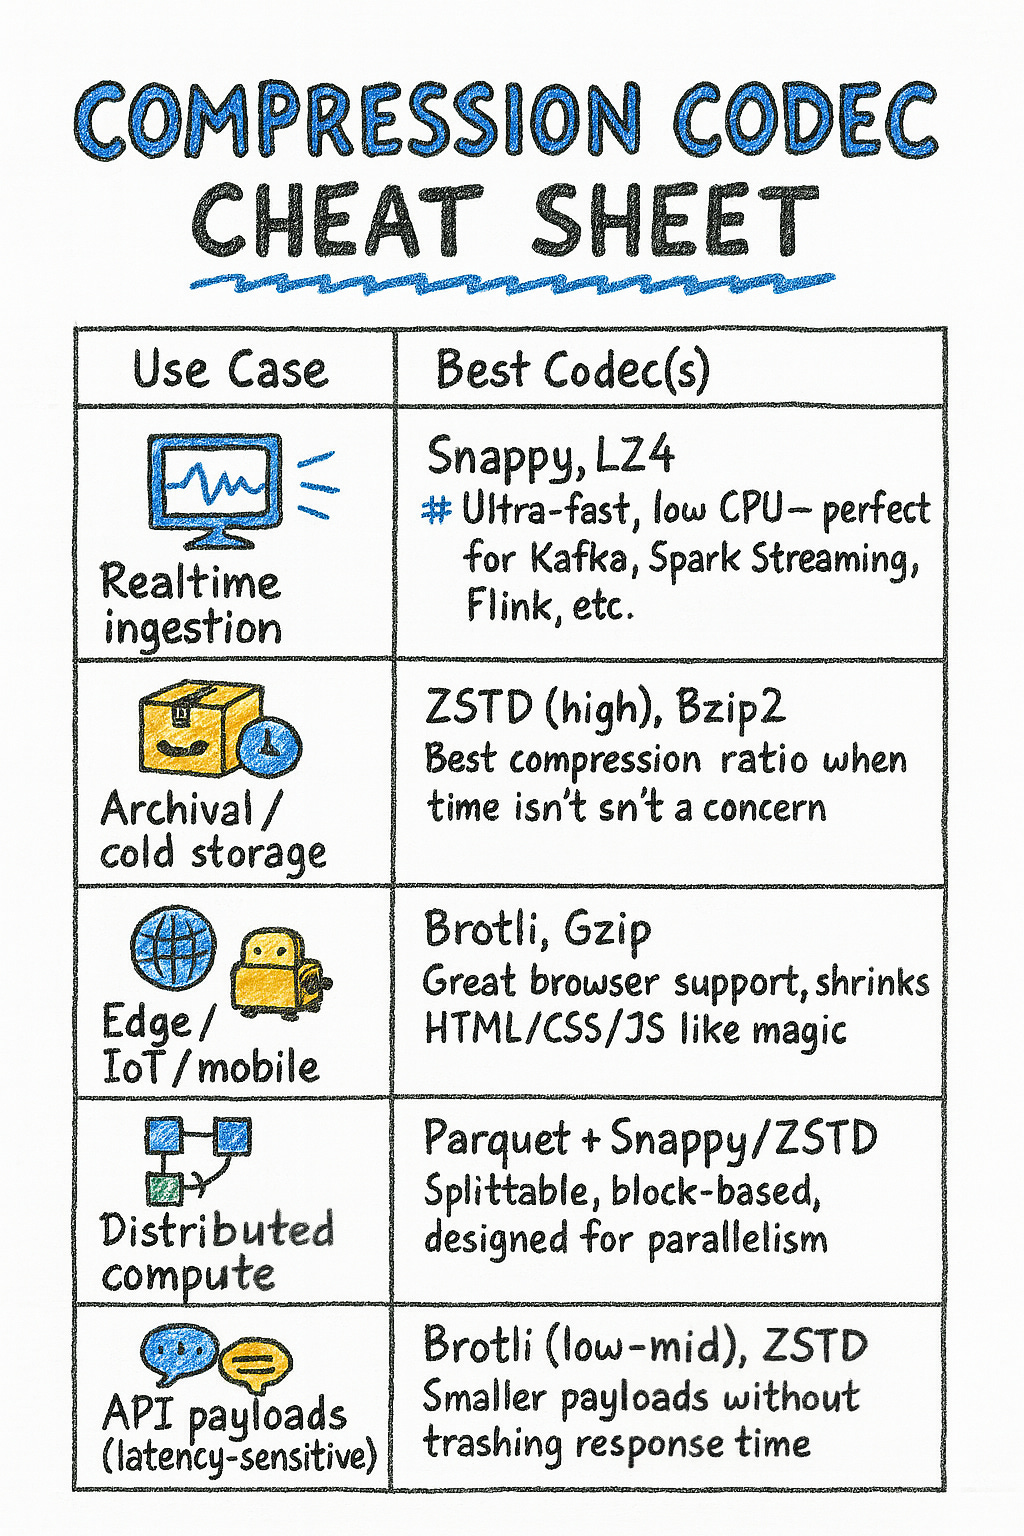 COMPRESSION CODEC
CHEAT SHEET
Use Case
Best Codec(s)
Realtime
ingestion
Snappy, LZ4
# Ultra-fast, low CPU– perfect
for Kafka, Spark Streaming,
Flink, etc.
Archival /
cold storage
ZSTD (high), Bzip2
Best compression ratio when
time isn't sn't a concern
Edge /
IoT / mobile
Brotli, Gzip
Great browser support, shrinks
HTML/CSS/JS like magic
Distributed
compute
Parquet + Snappy/ZSTD
Splittable, block-based,
designed for parallelism
API payloads
(latency-sensitive)
Brotli (low-mid), ZSTD
Smaller payloads without
trashing response time